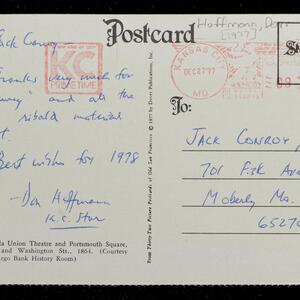 Hoffmann, Don
[1977]
Postcard
Jack Conroy
KC
PRIMETIME
KANSAS CITY
DEC 27 '77
MO
Thanks very much for
and all the
ribald material
Best wishes for 1978
Don Hoffmann
K.C. Star
© 1977 by Dover Publications, Inc.
From: Thirty-Two Picture Postcards of Old San Francisco
To:
JACK CONROY,
701 Fisk Ave
Moberly Mo.
6527
Union Theatre and Portsmouth Square,
and Washington Sts., 1864. (Courtesy
Bank History Room)